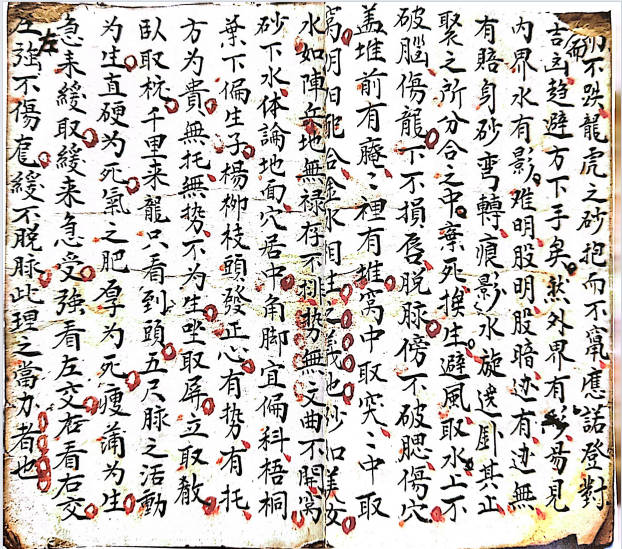 而不跌龍虎之砂抱而不竄應諾登對
吉凶趍避方下手矣然外界有影易見
內界水有影难明股明股暗边有边無
有賠身砂弯轉痕影水旋遶卦其止
聚之所分合之中棄死挨生避風取水上不
破腦傷龍下不損唇脱脉傍不破腮傷穴
盖堆前有窩〻種有堆窩中取突〻中取
水如陣兵地無禄存不排势無文曲不開窩
砂下水体論地面穴居中角脚宜偏科梧桐
葉下偏生子楊柳枝頭發正心有势有托
方為貴無托無势不为生坐取屏立取散
卧取枕千里来龍只看到頭五尺脉之活動
为生直硬为死氣之肥厚为死瘦蒲为生
急来緩取緩来急受強看左交右看右交
左強不傷龍緩不脱脉此理之當力者也